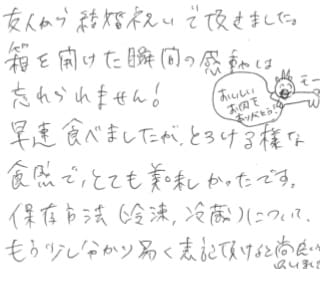 友人から結婚祝いで頂きました。
箱を開けた瞬間の感動は
忘れられません!
おいしい
お肉を
ありがとう!
早速食べましたが、とろける様な
食感で、とても美味しかったです。
保存方法(冷凍,冷蔵)について、
もう少し分かり易く表記頂けると尚良いと
思いました